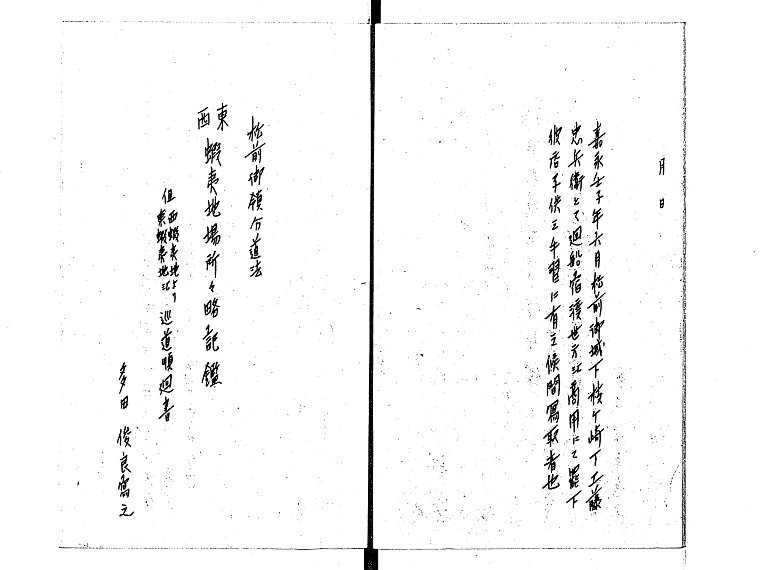 月日
嘉永壬子年六月松前御城下枝ケ崎下工藤
忠兵衛とて廻船宿渡世方江商用にて罷下
彼店子供之手習に有之候間写取者也
松前御領分道法
東西蝦夷地場所々略記鑑
但西蝦夷地より東蝦夷地江巡道順廻書
多田俊良写之